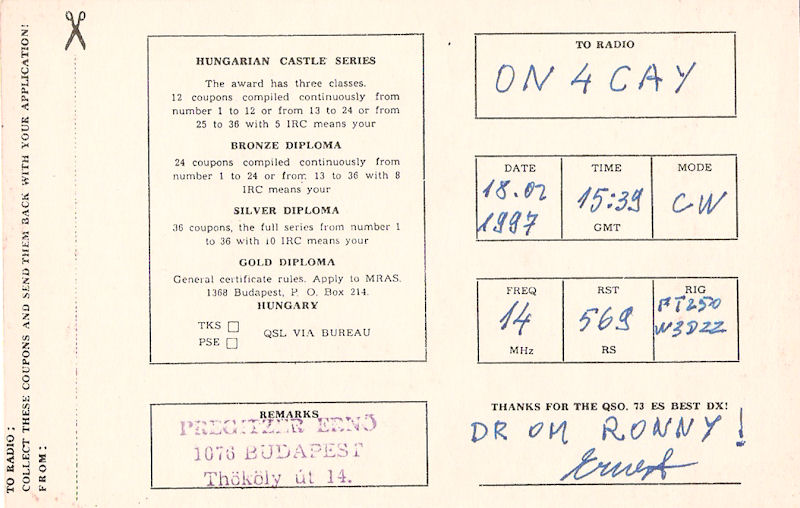 TO RADIO:
COLLECT THESE COUPONS AND SEND THEM BACK WITH YOUR APPLICATION!
FROM:
HUNGARIAN CASTLE SERIES
The award has three classes.
12 coupons compiled continuously from
number 1 to 12 or from 13 to 24 or from
25 to 36 with 5 IRC means your
BRONZE DIPLOMA
24 coupons compiled continuously from
number 1 to 24 or from 13 to 36 with 8
IRC means your
SILVER DIPLOMA
36 coupons, the full series from number 1
to 36 with 10 IRC means your
GOLD DIPLOMA
General certificate rules. Apply to MRAS.
1368 Budapest, P. O. Box 214.
HUNGARY
TKS
PSE
QSL VIA BUREAU
REMARKS
PREGITZER ERNŐ
1076 BUDAPEST
Thököly út 14.
TO RADIO
ON4CAY
DATE TIME MODE
18.02 15:39 CW
1997 GMT
FREQ RST RIG
14 569 FT250
W3DZZ
MHz RS
THANKS FOR THE QSO. 73 ES BEST DX!
DR OM RONNY!
Ernest